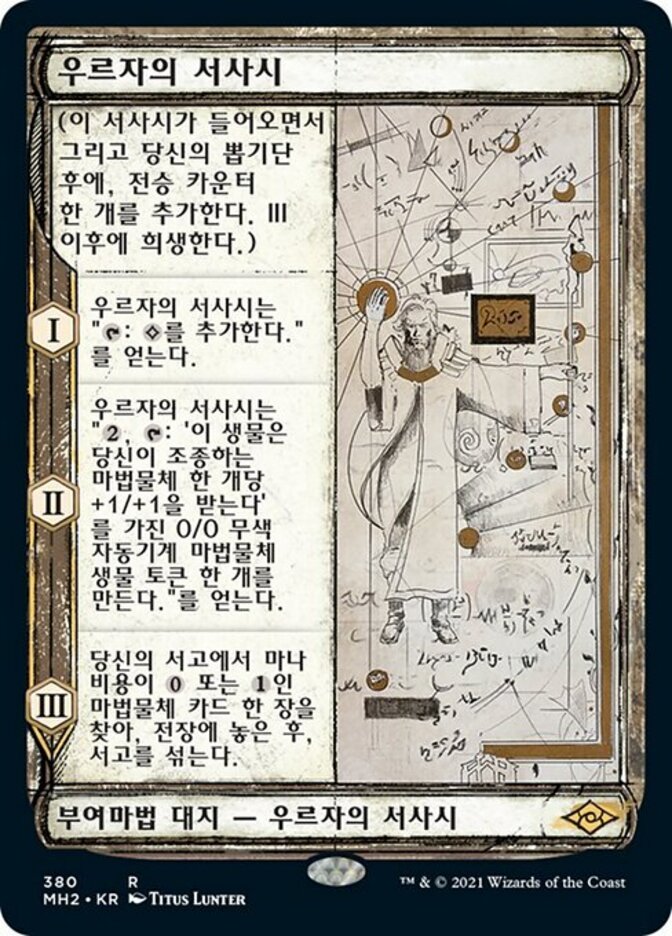 우르자의 서사시
(이 서사시가 들어오면서
그리고 당신의 뽑기단
후에, 전승 카운터
한 개를 추가한다. III
이후에 희생한다.)
I
우르자의 서사시는
": 를 추가한다."
를 얻는다.
II
우르자의 서사시는
"2, : '이 생물은
당신이 조종하는
마법물체 한 개당
+1/+1을 받는다'
를 가진 0/0 무색
자동기계 마법물체
생물 토큰 한 개를
만든다."를 얻는다.
III
당신의 서고에서 마나
비용이 0 또는 1인
마법물체 카드 한 장을
찾아, 전장에 놓은 후,
서고를 섞는다.
부여마법 대지 — 우르자의 서사시
380 R
MH2 • KR Titus Lunter
™ & © 2021 Wizards of the Coast